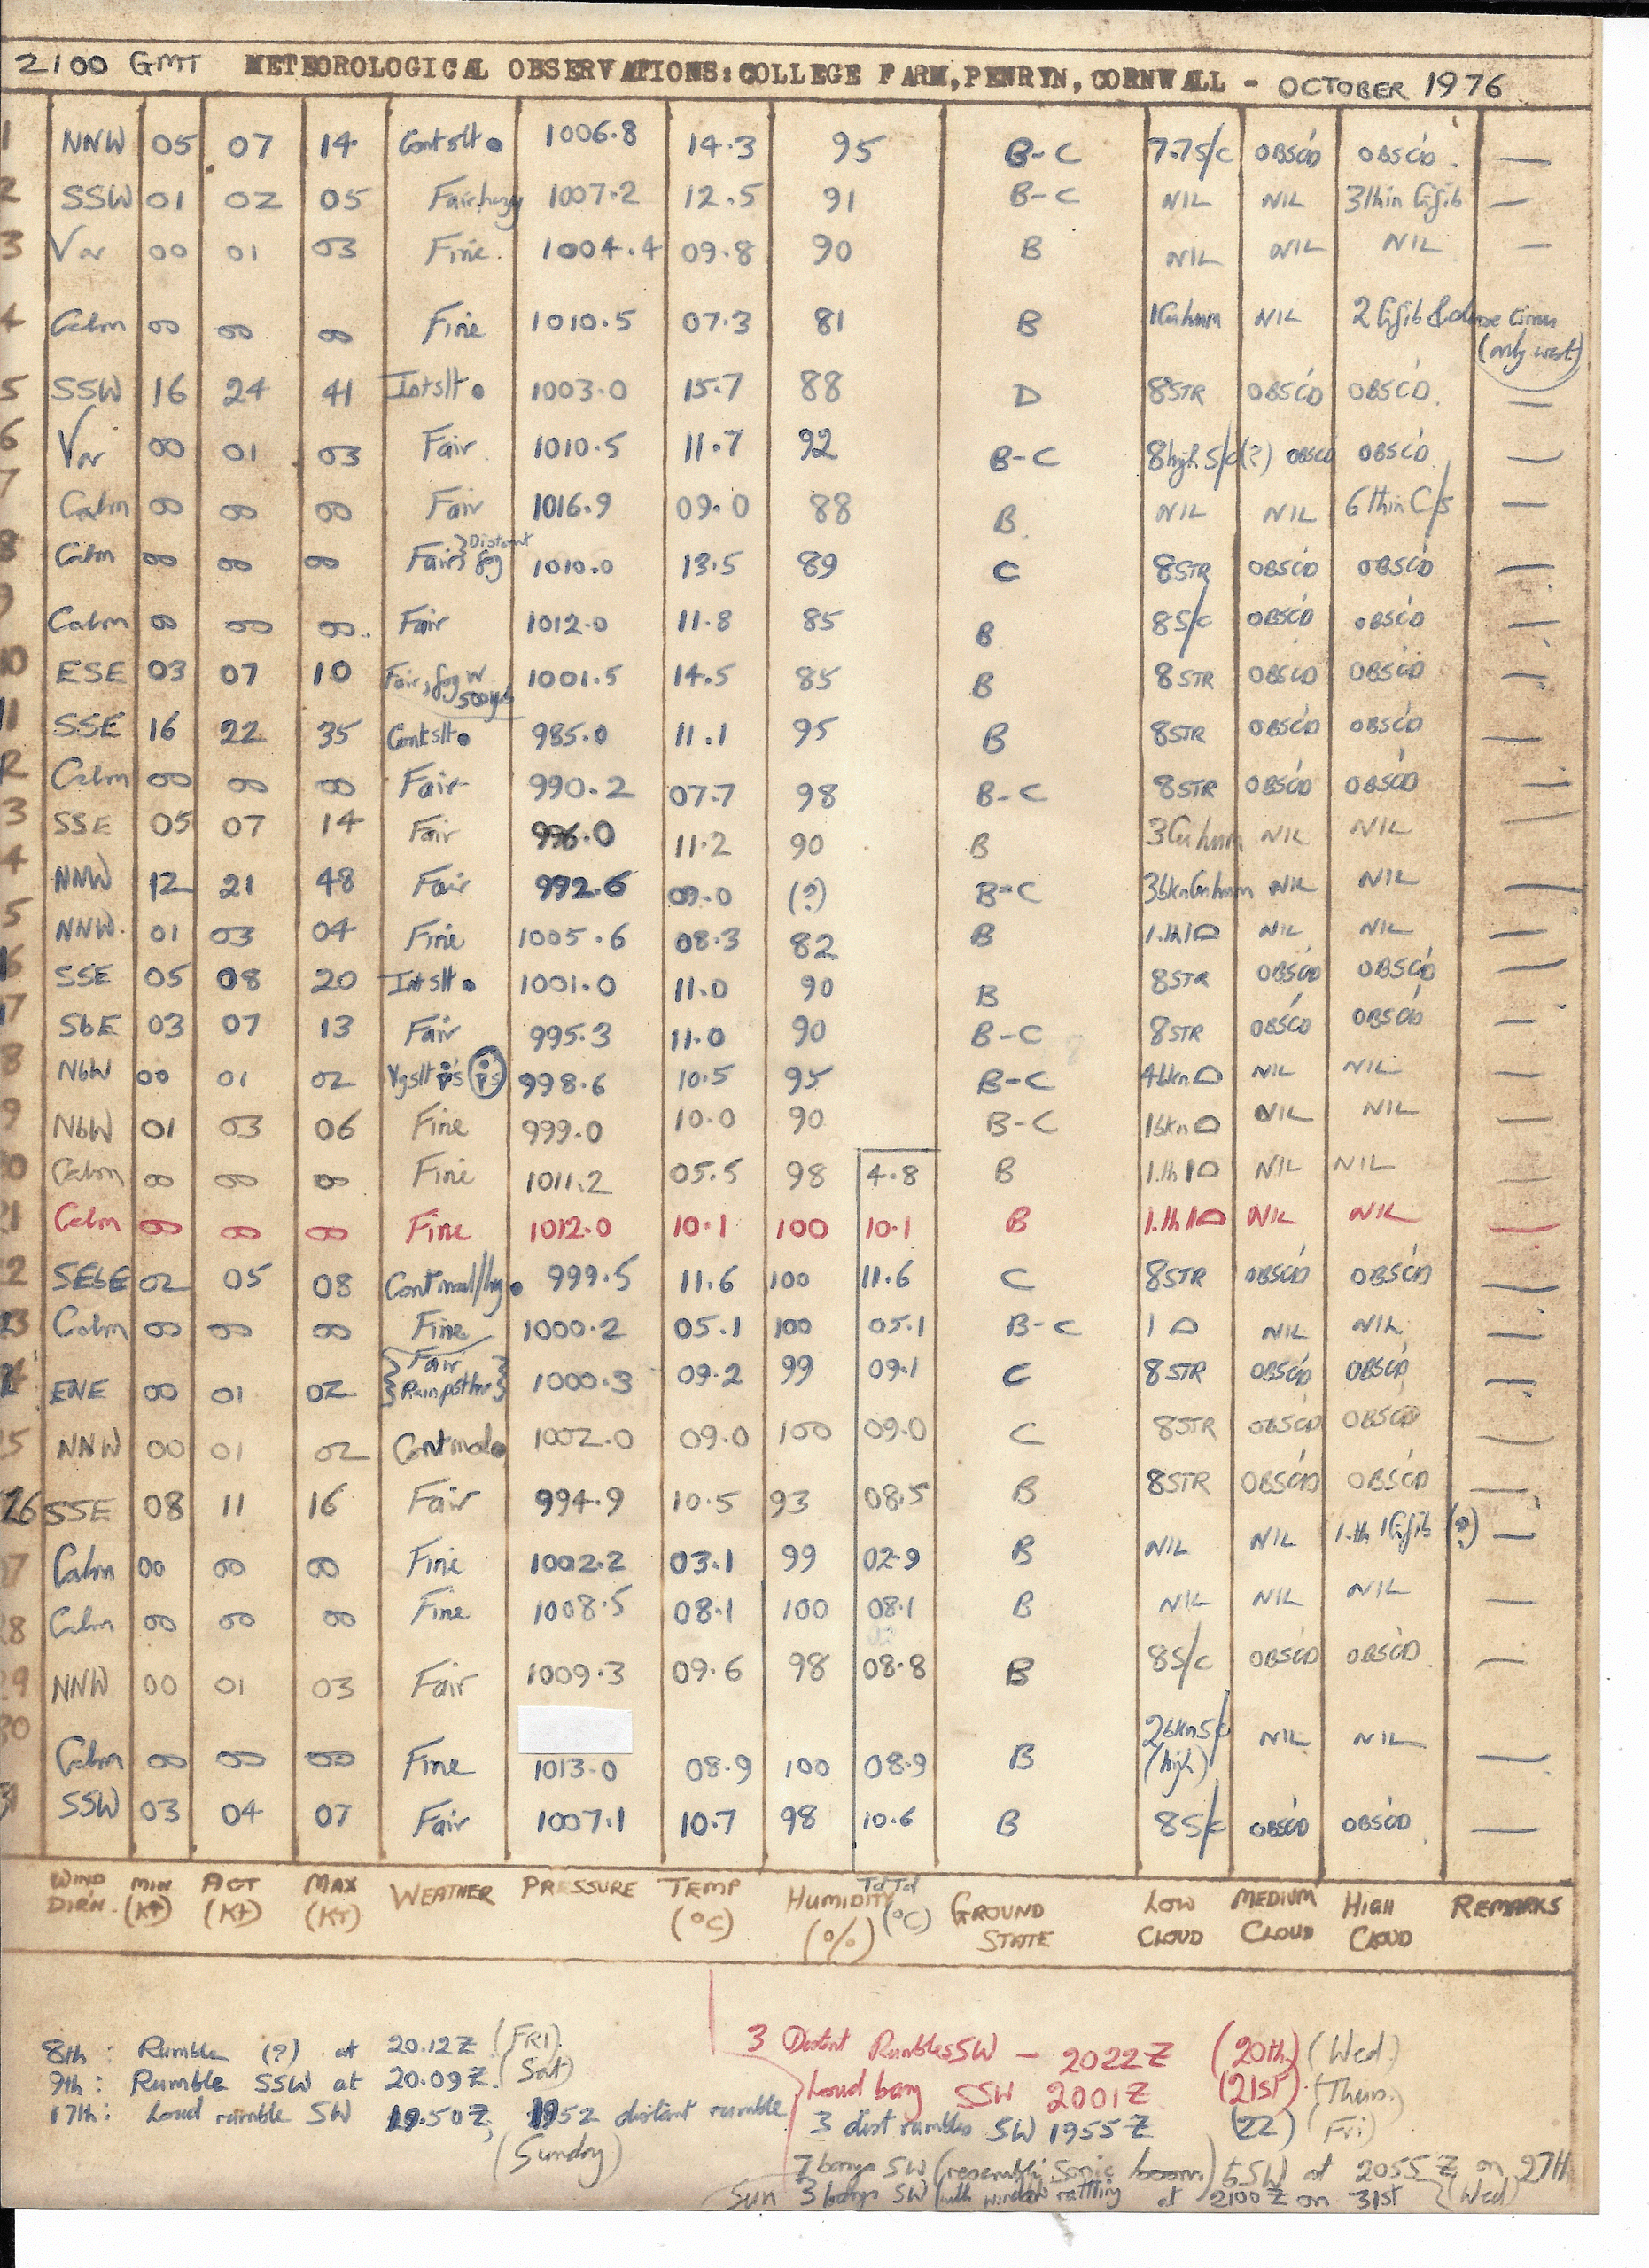 2100 GMT METEOROLOGICAL OBSERVATIONS: COLLEGE FARM, PENRYN, CORNWALL - OCTOBER 1976
1 NNW 05 07 14 Cont slt ● 1006.8 14.3 95 B-C 7.7 S/c OBSC'D OBSC'D —
2 SSW 01 02 05 Fair, hazy 1007.2 12.5 91 B-C NIL NIL 3 thin Ci fib —
3 Var 00 01 03 Fine 1004.4 09.8 90 B NIL NIL NIL —
4 Calm 00 00 00 Fine 1010.5 07.3 81 B 1 Cu hum NIL 2 Ci fib & dense cirrus
(only west)
5 SSW 16 24 41 Int slt ● 1003.0 15.7 88 D 8 STR OBSC'D OBSC'D —
6 Var 00 01 03 Fair 1010.5 11.7 92 B-C 8 high S/c (?) OBSCD OBSC'D —
7 Calm 00 00 00 Fair 1016.9 09.0 88 B NIL NIL 6 thin C/s —
8 Calm 00 00 00 Fair } Distant fog 1010.0 13.5 89 C 8 STR OBSC'D OBSC'D —
9 Calm 00 00 00 Fair 1012.0 11.8 85 B 8 S/c OBSC'D OBSC'D —
10 ESE 03 07 10 Fair, fog W 500yds 1001.5 14.5 85 B 8 STR OBSC'D OBSC'D —
11 SSE 16 22 35 Cont slt ● 985.0 11.1 95 B 8 STR OBSC'D OBSC'D —
12 Calm 00 00 00 Fair 990.2 07.7 98 B-C 8 STR OBSC'D OBSC'D —
3 SSE 05 07 14 Fair 996.0 11.2 90 B 3 Cu hum NIL NIL —
4 NNW 12 21 48 Fair 992.6 09.0 (?) B-C 3 bkn Cu hum NIL NIL —
5 NNW 01 03 04 Fine 1005.6 08.3 82 B 1.th 1 ⌓ NIL NIL —
16 SSE 05 08 20 Int slt ● 1001.0 11.0 90 B 8 STR OBSC'D OBSC'D —
17 SbE 03 07 13 Fair 995.3 11.0 90 B-C 8 STR OBSC'D OBSC'D —
8 NbW 00 01 02 998.6 10.5 95 B-C 4 bkn ⌓ NIL NIL —
9 NbW 01 03 06 Fine 999.0 10.0 90 B-C 1 bkn ⌓ NIL NIL —
20 Calm 00 00 00 Fine 1011.2 05.5 98 4.8 B 1.th 1 ⌓ NIL NIL —
21 Calm 00 00 00 Fine 1012.0 10.1 100 10.1 B 1.th 1 ⌓ NIL NIL —
2 SEbE 02 05 08 Cont mod/hvy ● 999.5 11.6 100 11.6 C 8 STR OBSC'D OBSC'D —
23 Calm 00 00 00 Fine 1000.2 05.1 100 05.1 B-C 1 ⌓ NIL NIL —
24 ENE 00 01 02 { Fair Rain past hr } 1000.3 09.2 99 09.1 C 8 STR OBSC'D OBSC'D —
5 NNW 00 01 02 Cont mod ● 1002.0 09.0 100 09.0 C 8 STR OBSC'D OBSC'D —
26 SSE 08 11 16 Fair 994.9 10.5 93 08.5 B 8 STR OBSC'D OBSC'D —
27 Calm 00 00 00 Fine 1002.2 03.1 99 02.9 B NIL NIL 1.th 1 Ci fib (?) —
28 Calm 00 00 00 Fine 1008.5 08.1 100 08.1 B NIL NIL NIL —
29 NNW 00 01 03 Fair 1009.3 09.6 98 08.8 B 8 S/c OBSC'D OBSC'D —
30 Calm 00 00 00 Fine 1013.0 08.9 100 08.9 B 2 bkn S/c (high) NIL NIL —
31 SSW 03 04 07 Fair 1007.1 10.7 98 10.6 B 8 S/c OBSC'D OBSC'D —
WIND DIR'N. MIN (KT) ACT (KT) MAX (KT) WEATHER PRESSURE TEMP (°C) HUMIDITY (%) Td Td (°C) GROUND STATE LOW CLOUD MEDIUM CLOUD HIGH CLOUD REMARKS
8th: Rumble (?) at 20.12Z (FRI)
9th: Rumble SSW at 20.09Z (Sat)
17th: Loud rumble SW 19.50Z, 1952 distant rumble
(Sunday)
3 Distant Rumbles SW - 2022Z (20th) (Wed)
Loud bang SSW 2001Z (21st) (Thurs.)
3 dist rumbles SW 1955Z (22) (Fri)
7 bangs SW (resembling Sonic boom) SSW at 2055Z on 27th
Sun 3 bangs SW (with window rattling at 2100Z on 31st (Wed)